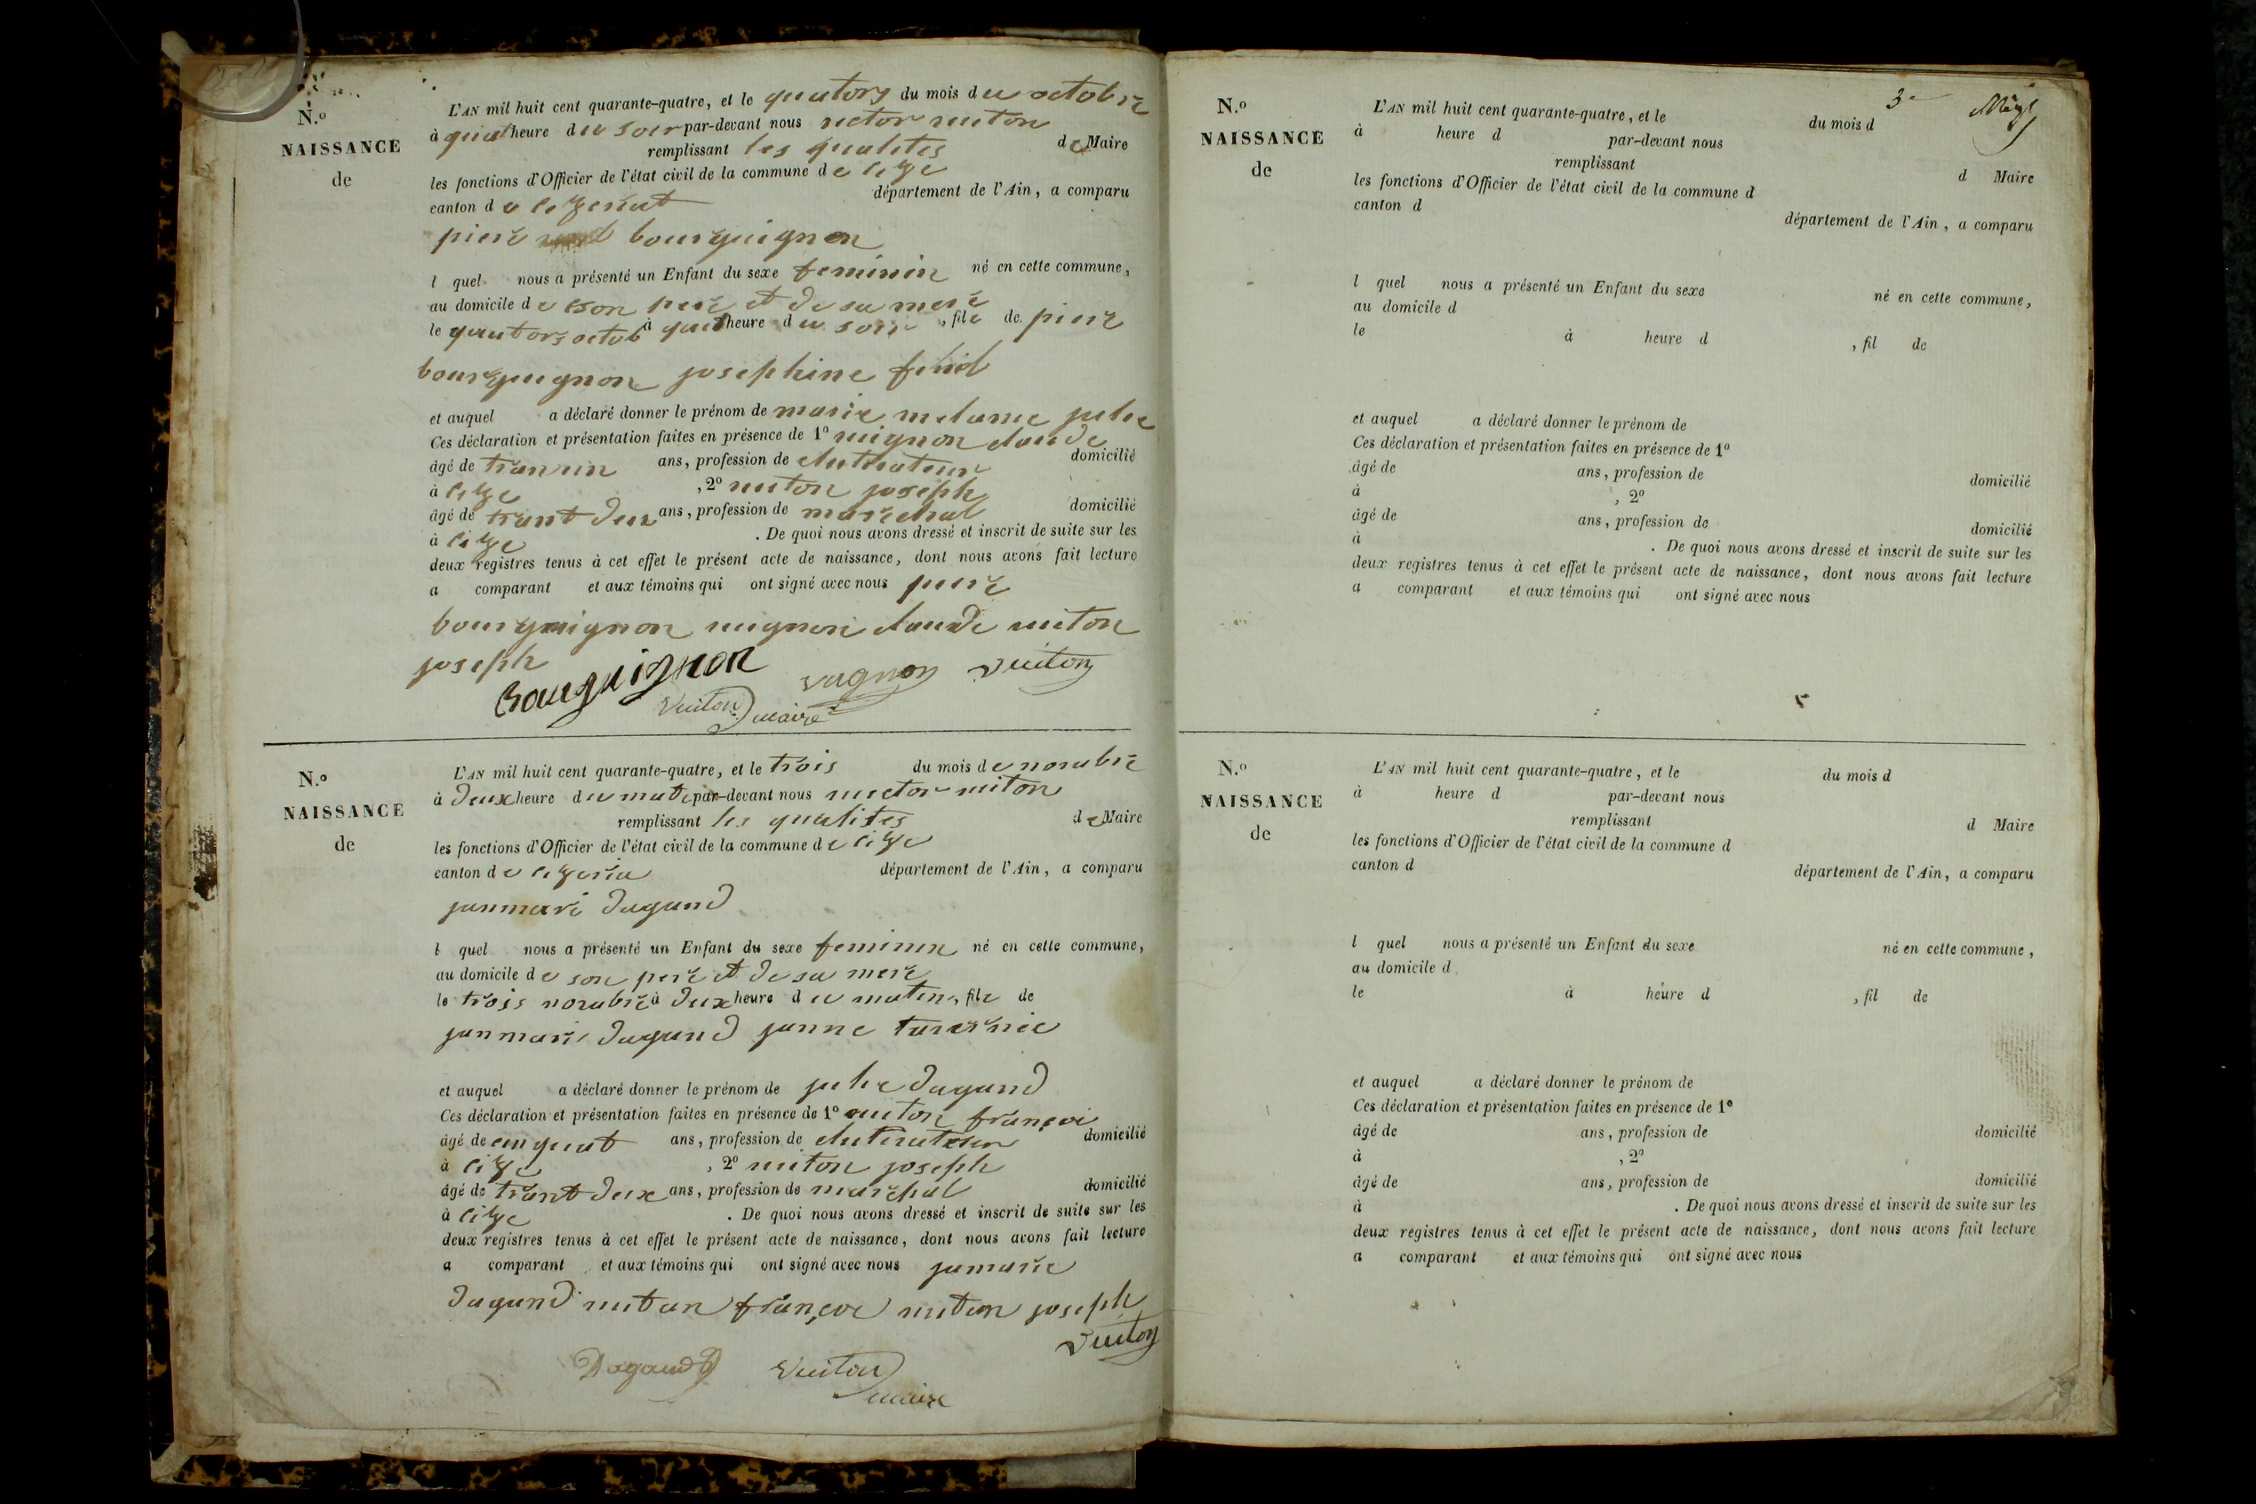 N.º
NAISSANCE
de
L'AN mil huit cent quarante-quatre, et le quatorz du mois du octobre
à quat heure du soir par-devant nous victor vuiton
remplissant les qualites de Maire
les fonctions d'Officier de l'état civil de la commune de
canton de département de l'Ain, a comparu
piere bourguignon
l quel nous a présenté un Enfant du sexe feminin né en cette commune,
au domicile de son pere et de sa mere
le quatorz octob à quat heure du soir, file de piere
bourguignon josephine
et auquel a déclaré donner le prénom de marie melanie julie
Ces déclaration et présentation faites en présence de 1º claude
âgé de ans, profession de domicilié
à , 2º vuiton joseph
âgé de trant deux ans, profession de marechal domicilié
à . De quoi nous avons dressé et inscrit de suite sur les
deux registres tenus à cet effet le présent acte de naissance, dont nous avons fait lecture
a comparant et aux témoins qui ont signé avec nous piere
bourguignon claude vuiton
joseph
Bourguignon vuiton
Vuiton maire
N.º
NAISSANCE
de
L'AN mil huit cent quarante-quatre, et le trois du mois de novabre
à deux heure du mati par-devant nous victor vuiton
remplissant les qualites de Maire
les fonctions d'Officier de l'état civil de la commune de
canton de département de l'Ain, a comparu
janmari dagand
l quel nous a présenté un Enfant du sexe feminin né en cette commune,
au domicile de son pere et de sa mere
le trois novabre à deux heure du matin, file de
janmari dagand janne
et auquel a déclaré donner le prénom de julie dagand
Ces déclaration et présentation faites en présence de 1º vuiton françoi
âgé de cinquat ans, profession de domicilié
à , 2º vuiton joseph
âgé de trant deux ans, profession de marechal domicilié
à . De quoi nous avons dressé et inscrit de suite sur les
deux registres tenus à cet effet le présent acte de naissance, dont nous avons fait lecture
a comparant et aux témoins qui ont signé avec nous jamarie
dagand vuiton françoi vuiton joseph
vuiton
Dagand Vuiton
maire
3e
N.º
NAISSANCE
de
L'AN mil huit cent quarante-quatre, et le du mois d
à heure d par-devant nous
remplissant d Maire
les fonctions d'Officier de l'état civil de la commune d
canton d département de l'Ain, a comparu
l quel nous a présenté un Enfant du sexe né en cette commune,
au domicile d
le à heure d , fil de
et auquel a déclaré donner le prénom de
Ces déclaration et présentation faites en présence de 1º
âgé de ans, profession de domicilié
à , 2º
âgé de ans, profession de domicilié
à . De quoi nous avons dressé et inscrit de suite sur les
deux registres tenus à cet effet le présent acte de naissance, dont nous avons fait lecture
a comparant et aux témoins qui ont signé avec nous
N.º
NAISSANCE
de
L'AN mil huit cent quarante-quatre, et le du mois d
à heure d par-devant nous
remplissant d Maire
les fonctions d'Officier de l'état civil de la commune d
canton d département de l'Ain, a comparu
l quel nous a présenté un Enfant du sexe né en cette commune,
au domicile d
le à heure d , fil de
et auquel a déclaré donner le prénom de
Ces déclaration et présentation faites en présence de 1º
âgé de ans, profession de domicilié
à , 2º
âgé de ans, profession de domicilié
à . De quoi nous avons dressé et inscrit de suite sur les
deux registres tenus à cet effet le présent acte de naissance, dont nous avons fait lecture
a comparant et aux témoins qui ont signé avec nous